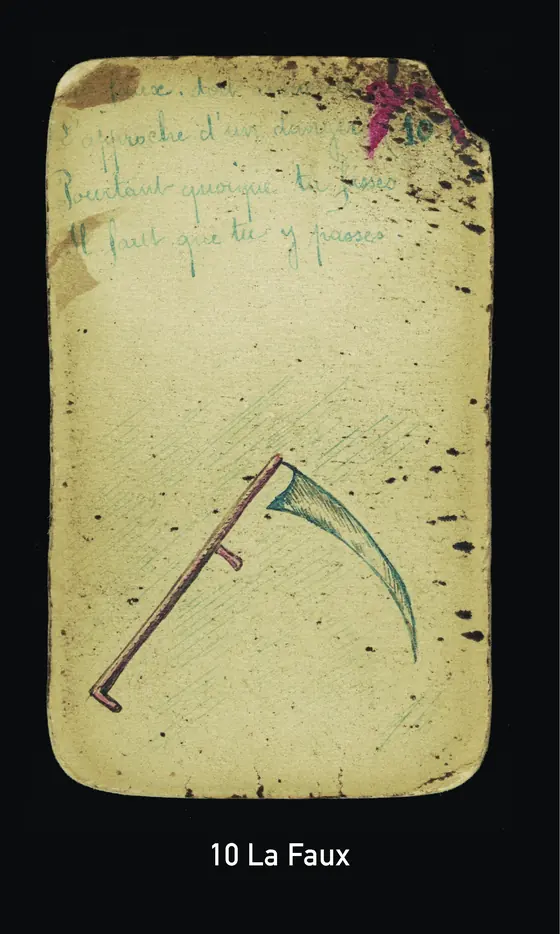 faux.
L'approche d'un danger
10
Pourtant quoique tu fasses
Il faut que tu y passes
10 La Faux